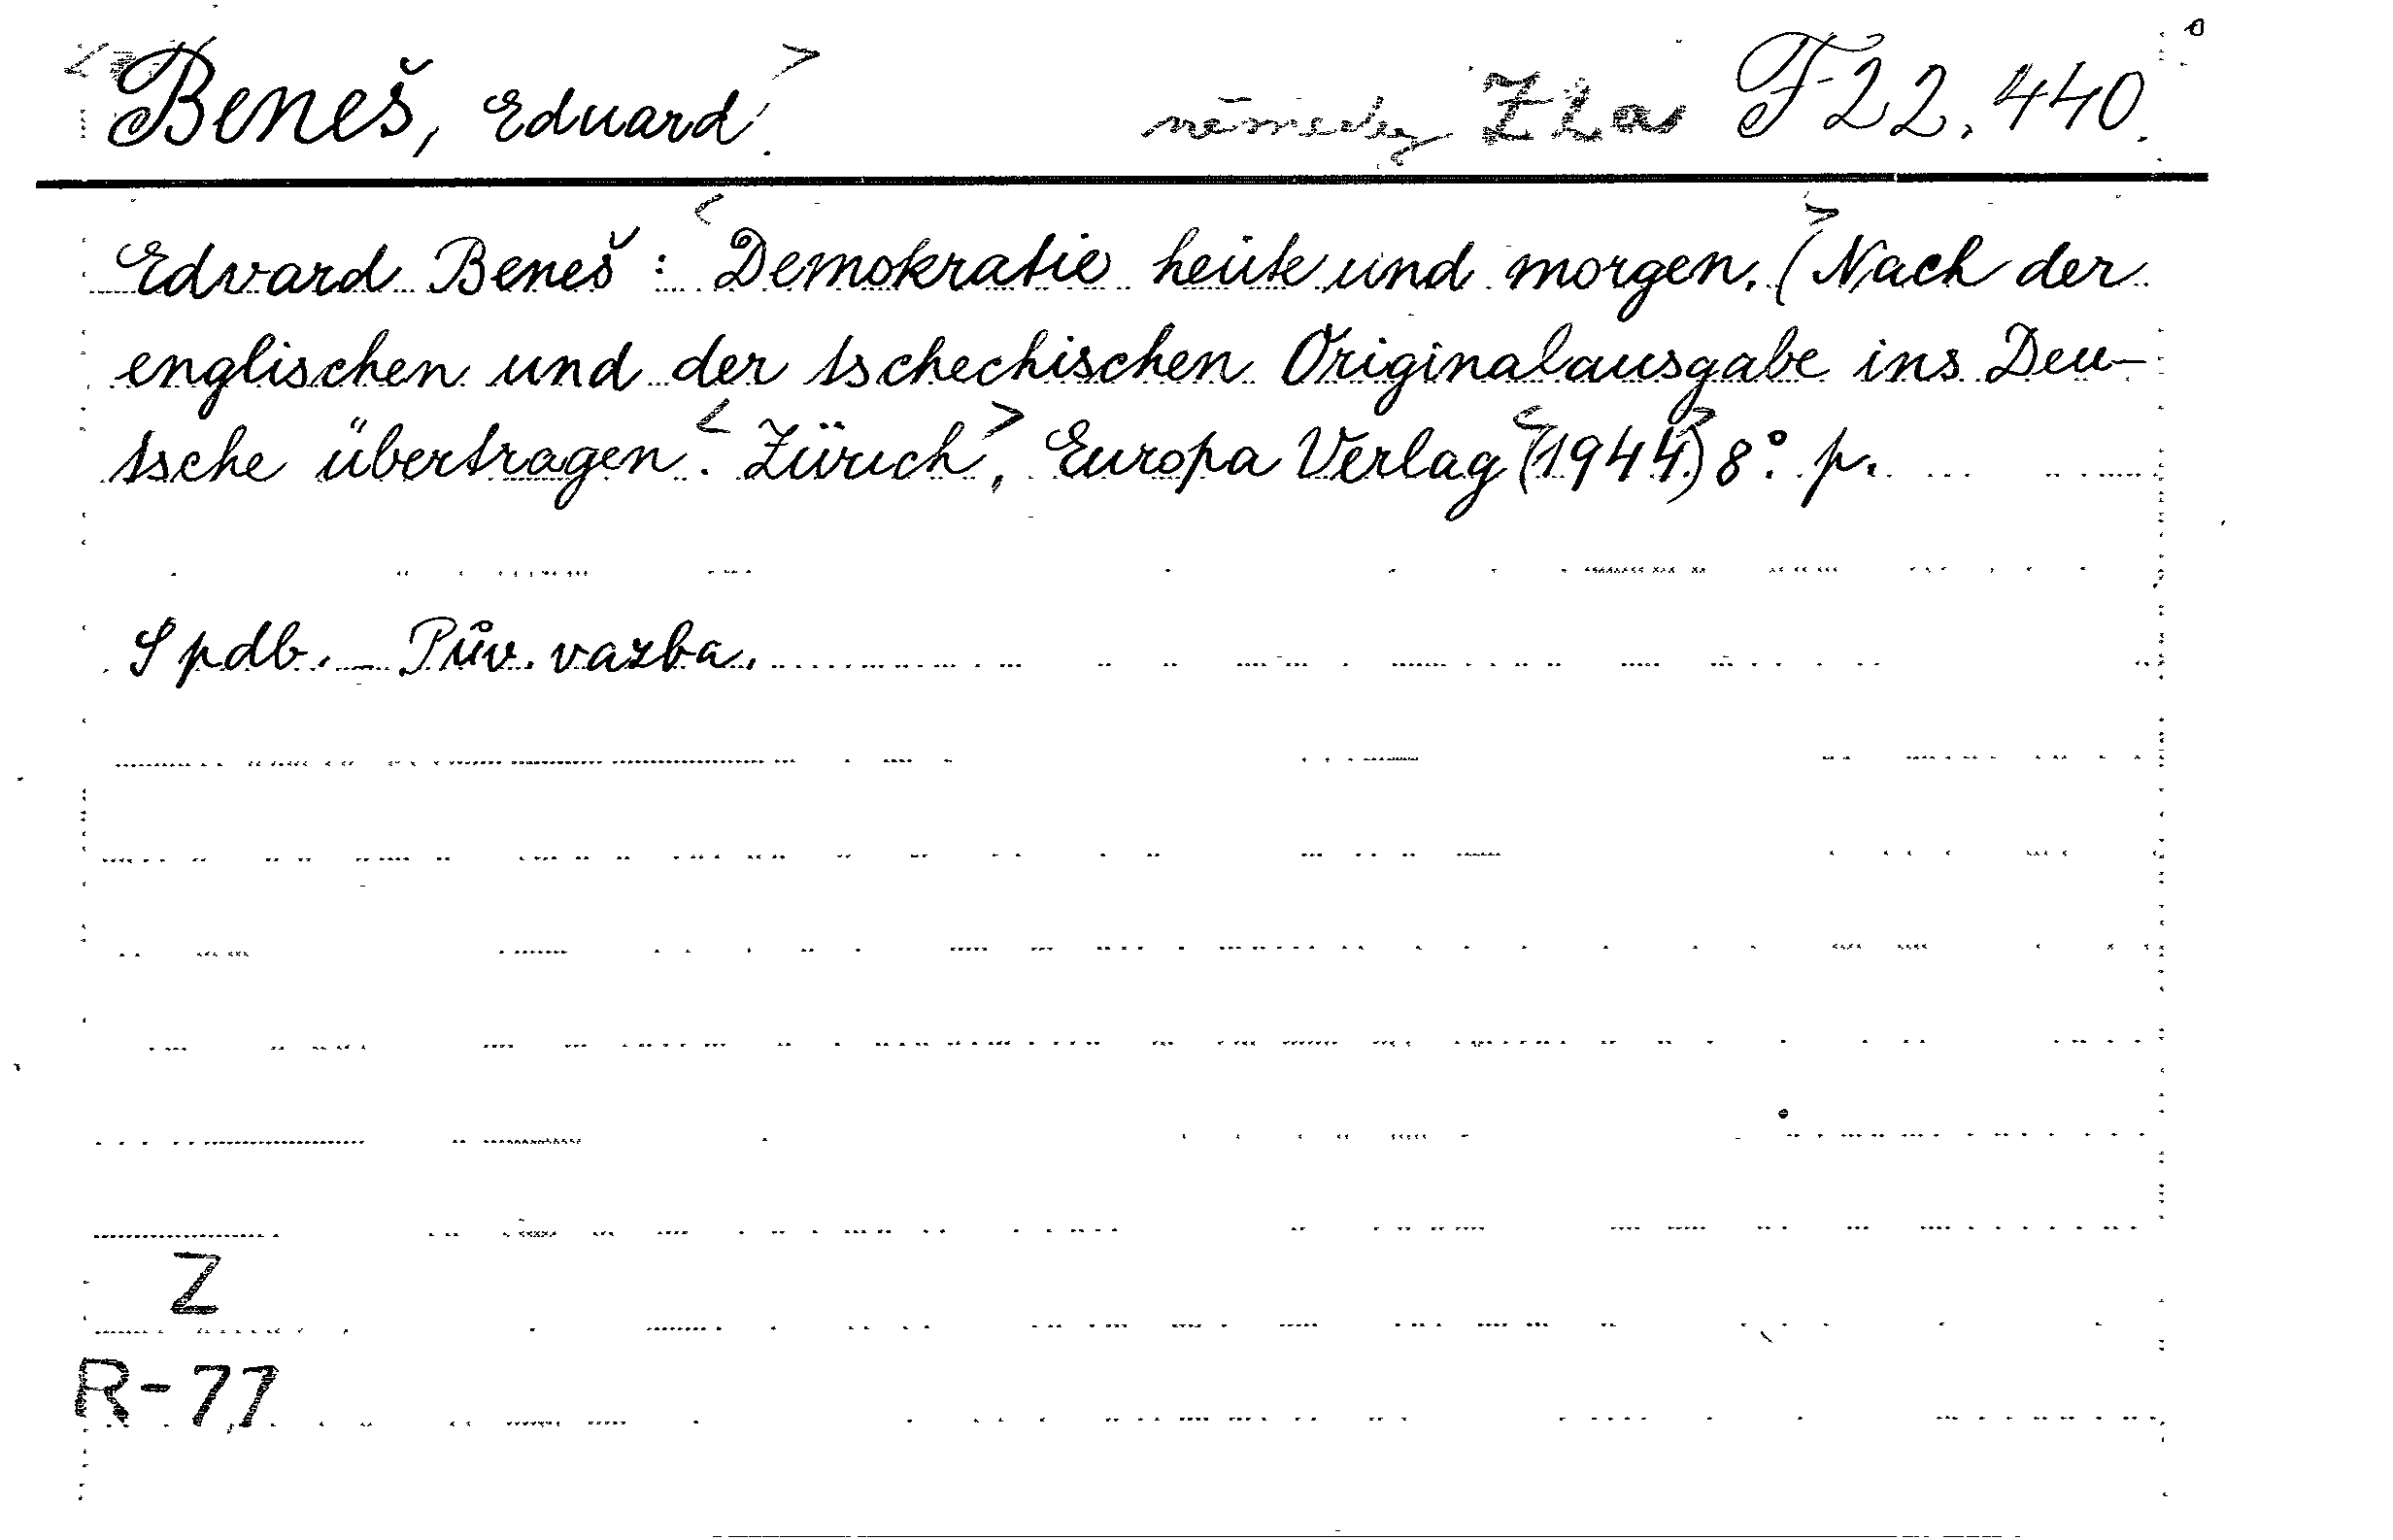 <Beneš, Eduard> německy Z F 22.440.
Edvard Beneš: <Demokratie heute und morgen.> (Nach der
englischen und der tschechischen Originalausgabe ins Deu-
tsche übertragen. <Zürich>, Europa Verlag <(1944.>) 8°. p.
S pdb. - Pův. vazba.
Z
R-77